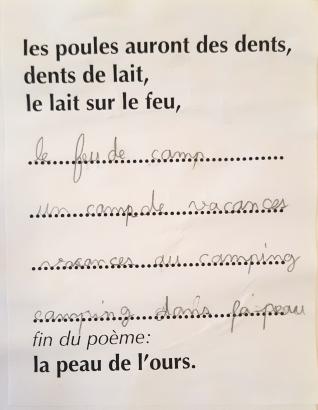 les poules auront des dents,
dents de lait,
le lait sur le feu,
le feu de camp
un camp de vacances
vacances au camping
camping dans la peau
fin du poème:
la peau de l'ours.